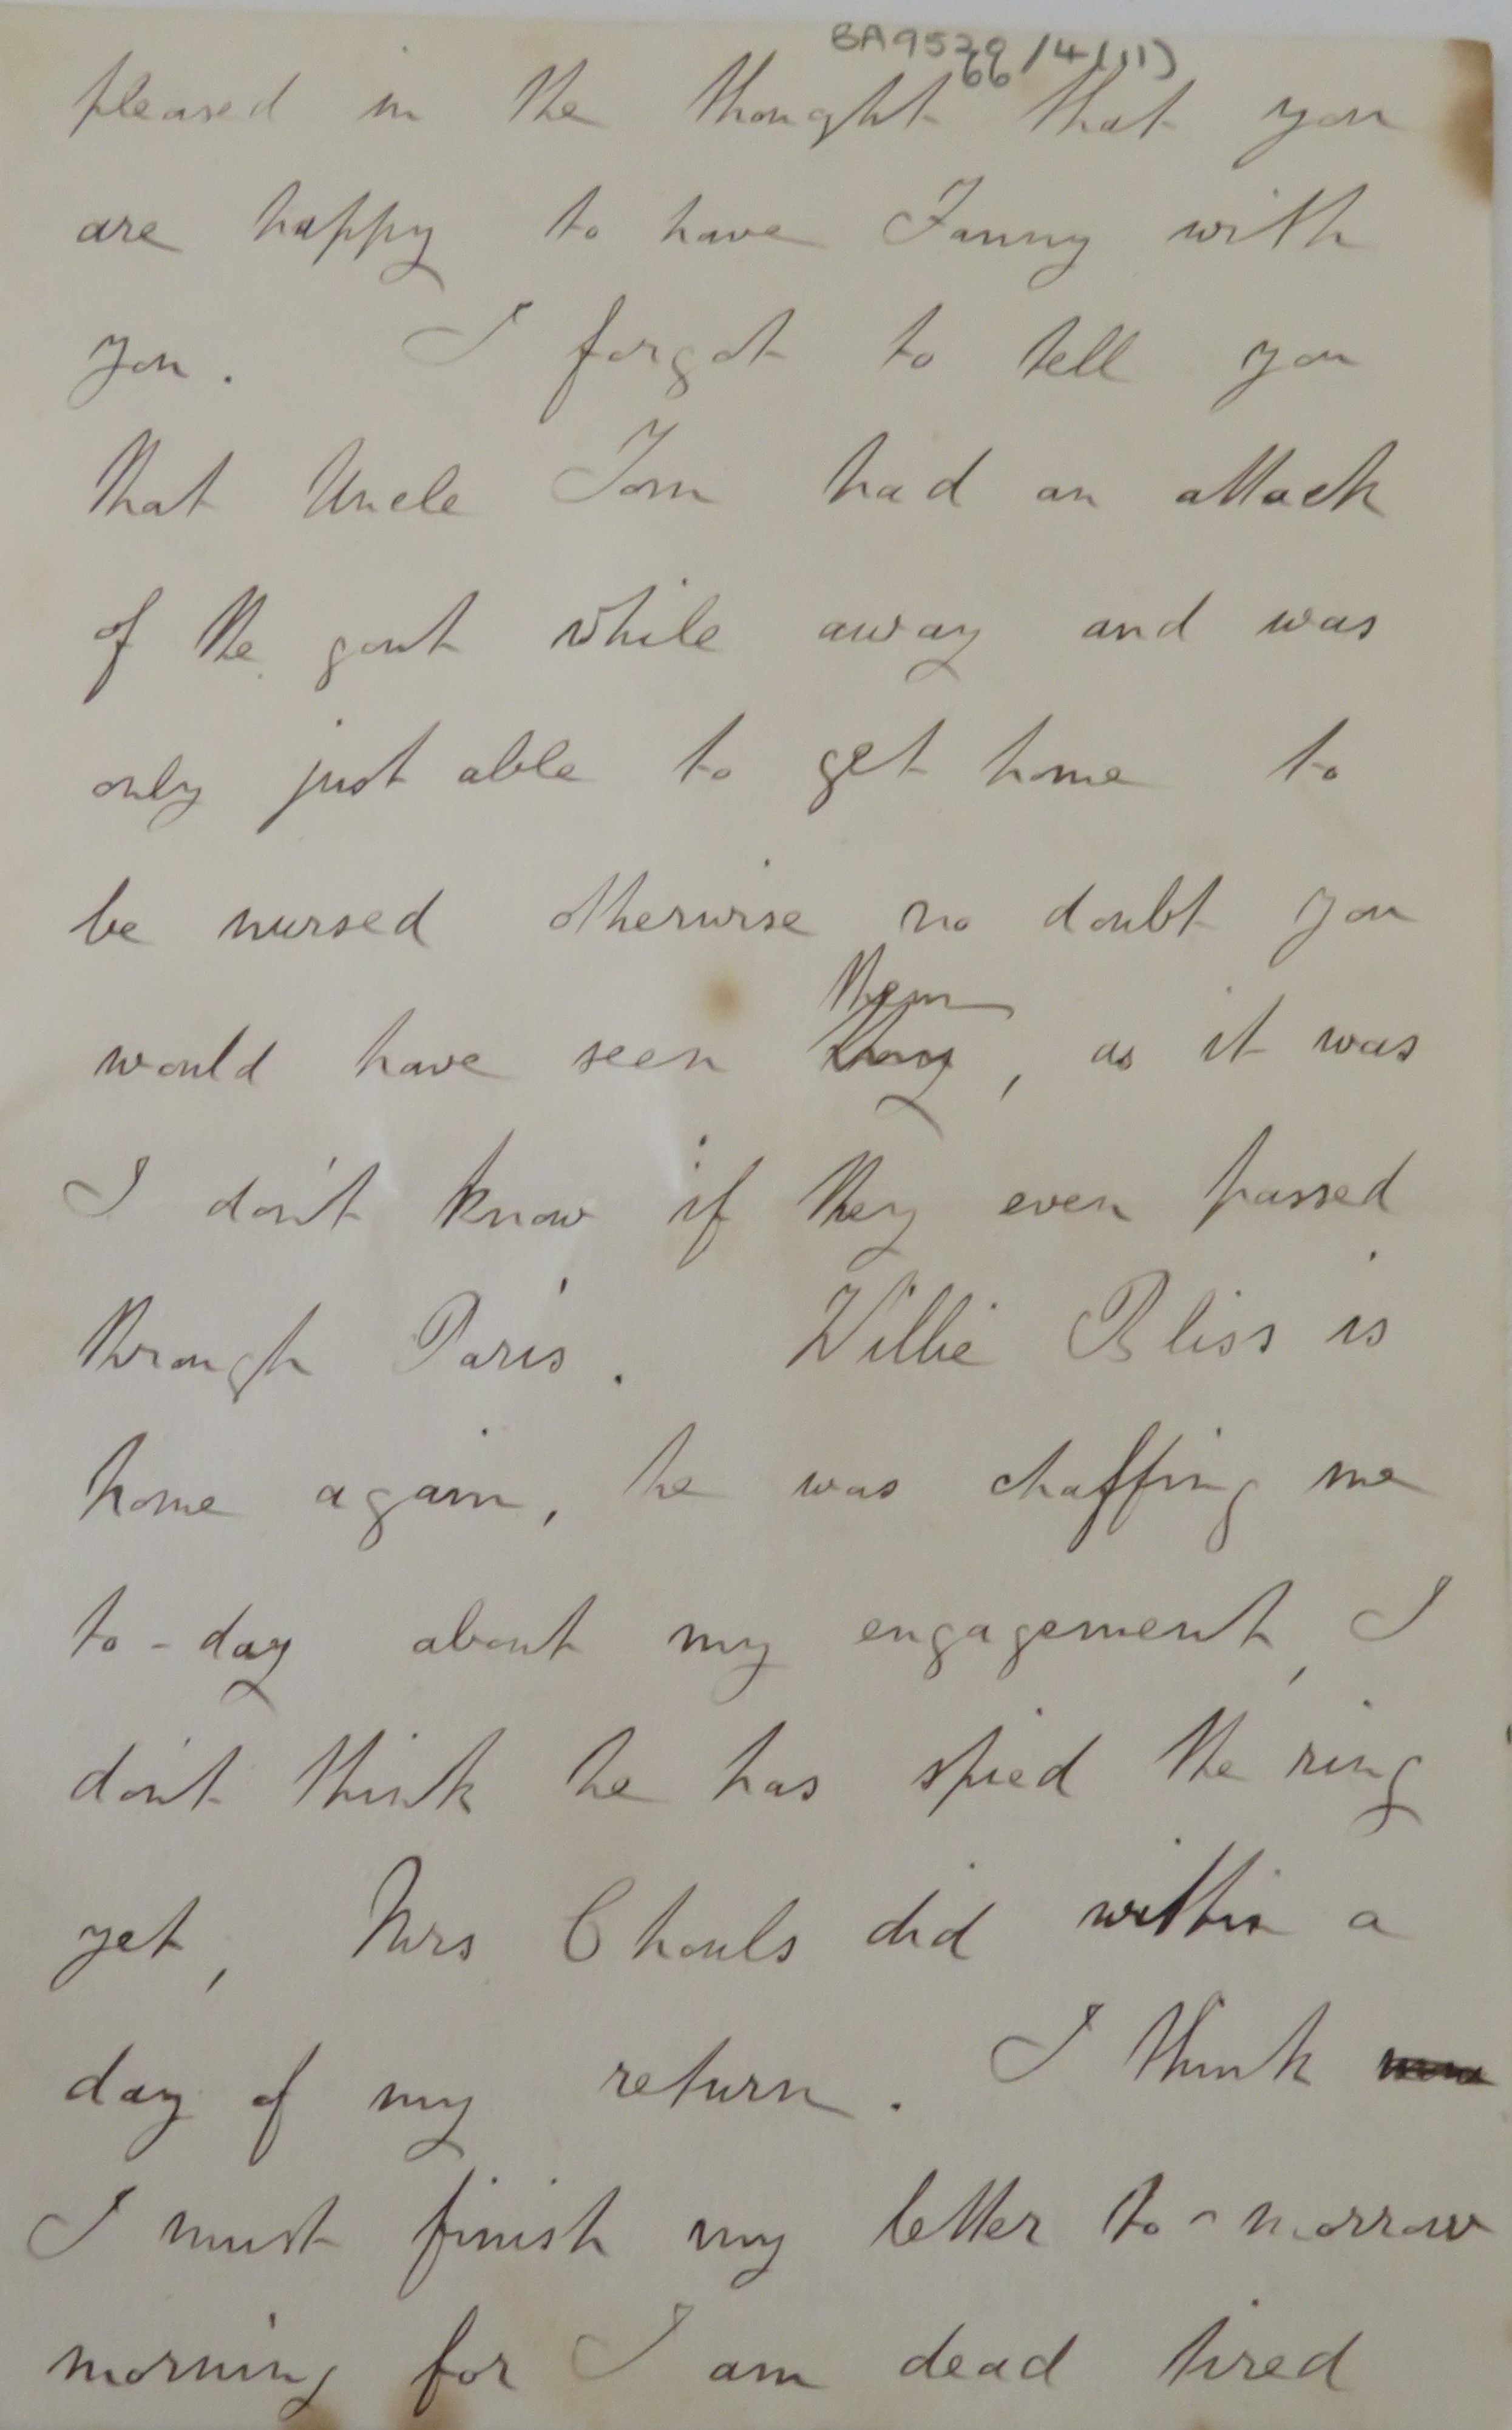 BA9520/4(11)
66
pleased in the thought that you
are happy to have Fanny with
you. I forgot to tell you
that Uncle Tom had an attack
of the gout while away and was
only just able to get home to
be nursed otherwise no doubt you
them
would have seen they, as it was
I don't know if they even passed
through Paris. Willie Bliss is
home again, he was chaffing me
to-day about my engagement, I
don't think he has spied the ring
yet, Mrs Chouls did within a
day of my return. I think
I must finish my letter to-morrow
morning for I am dead tired